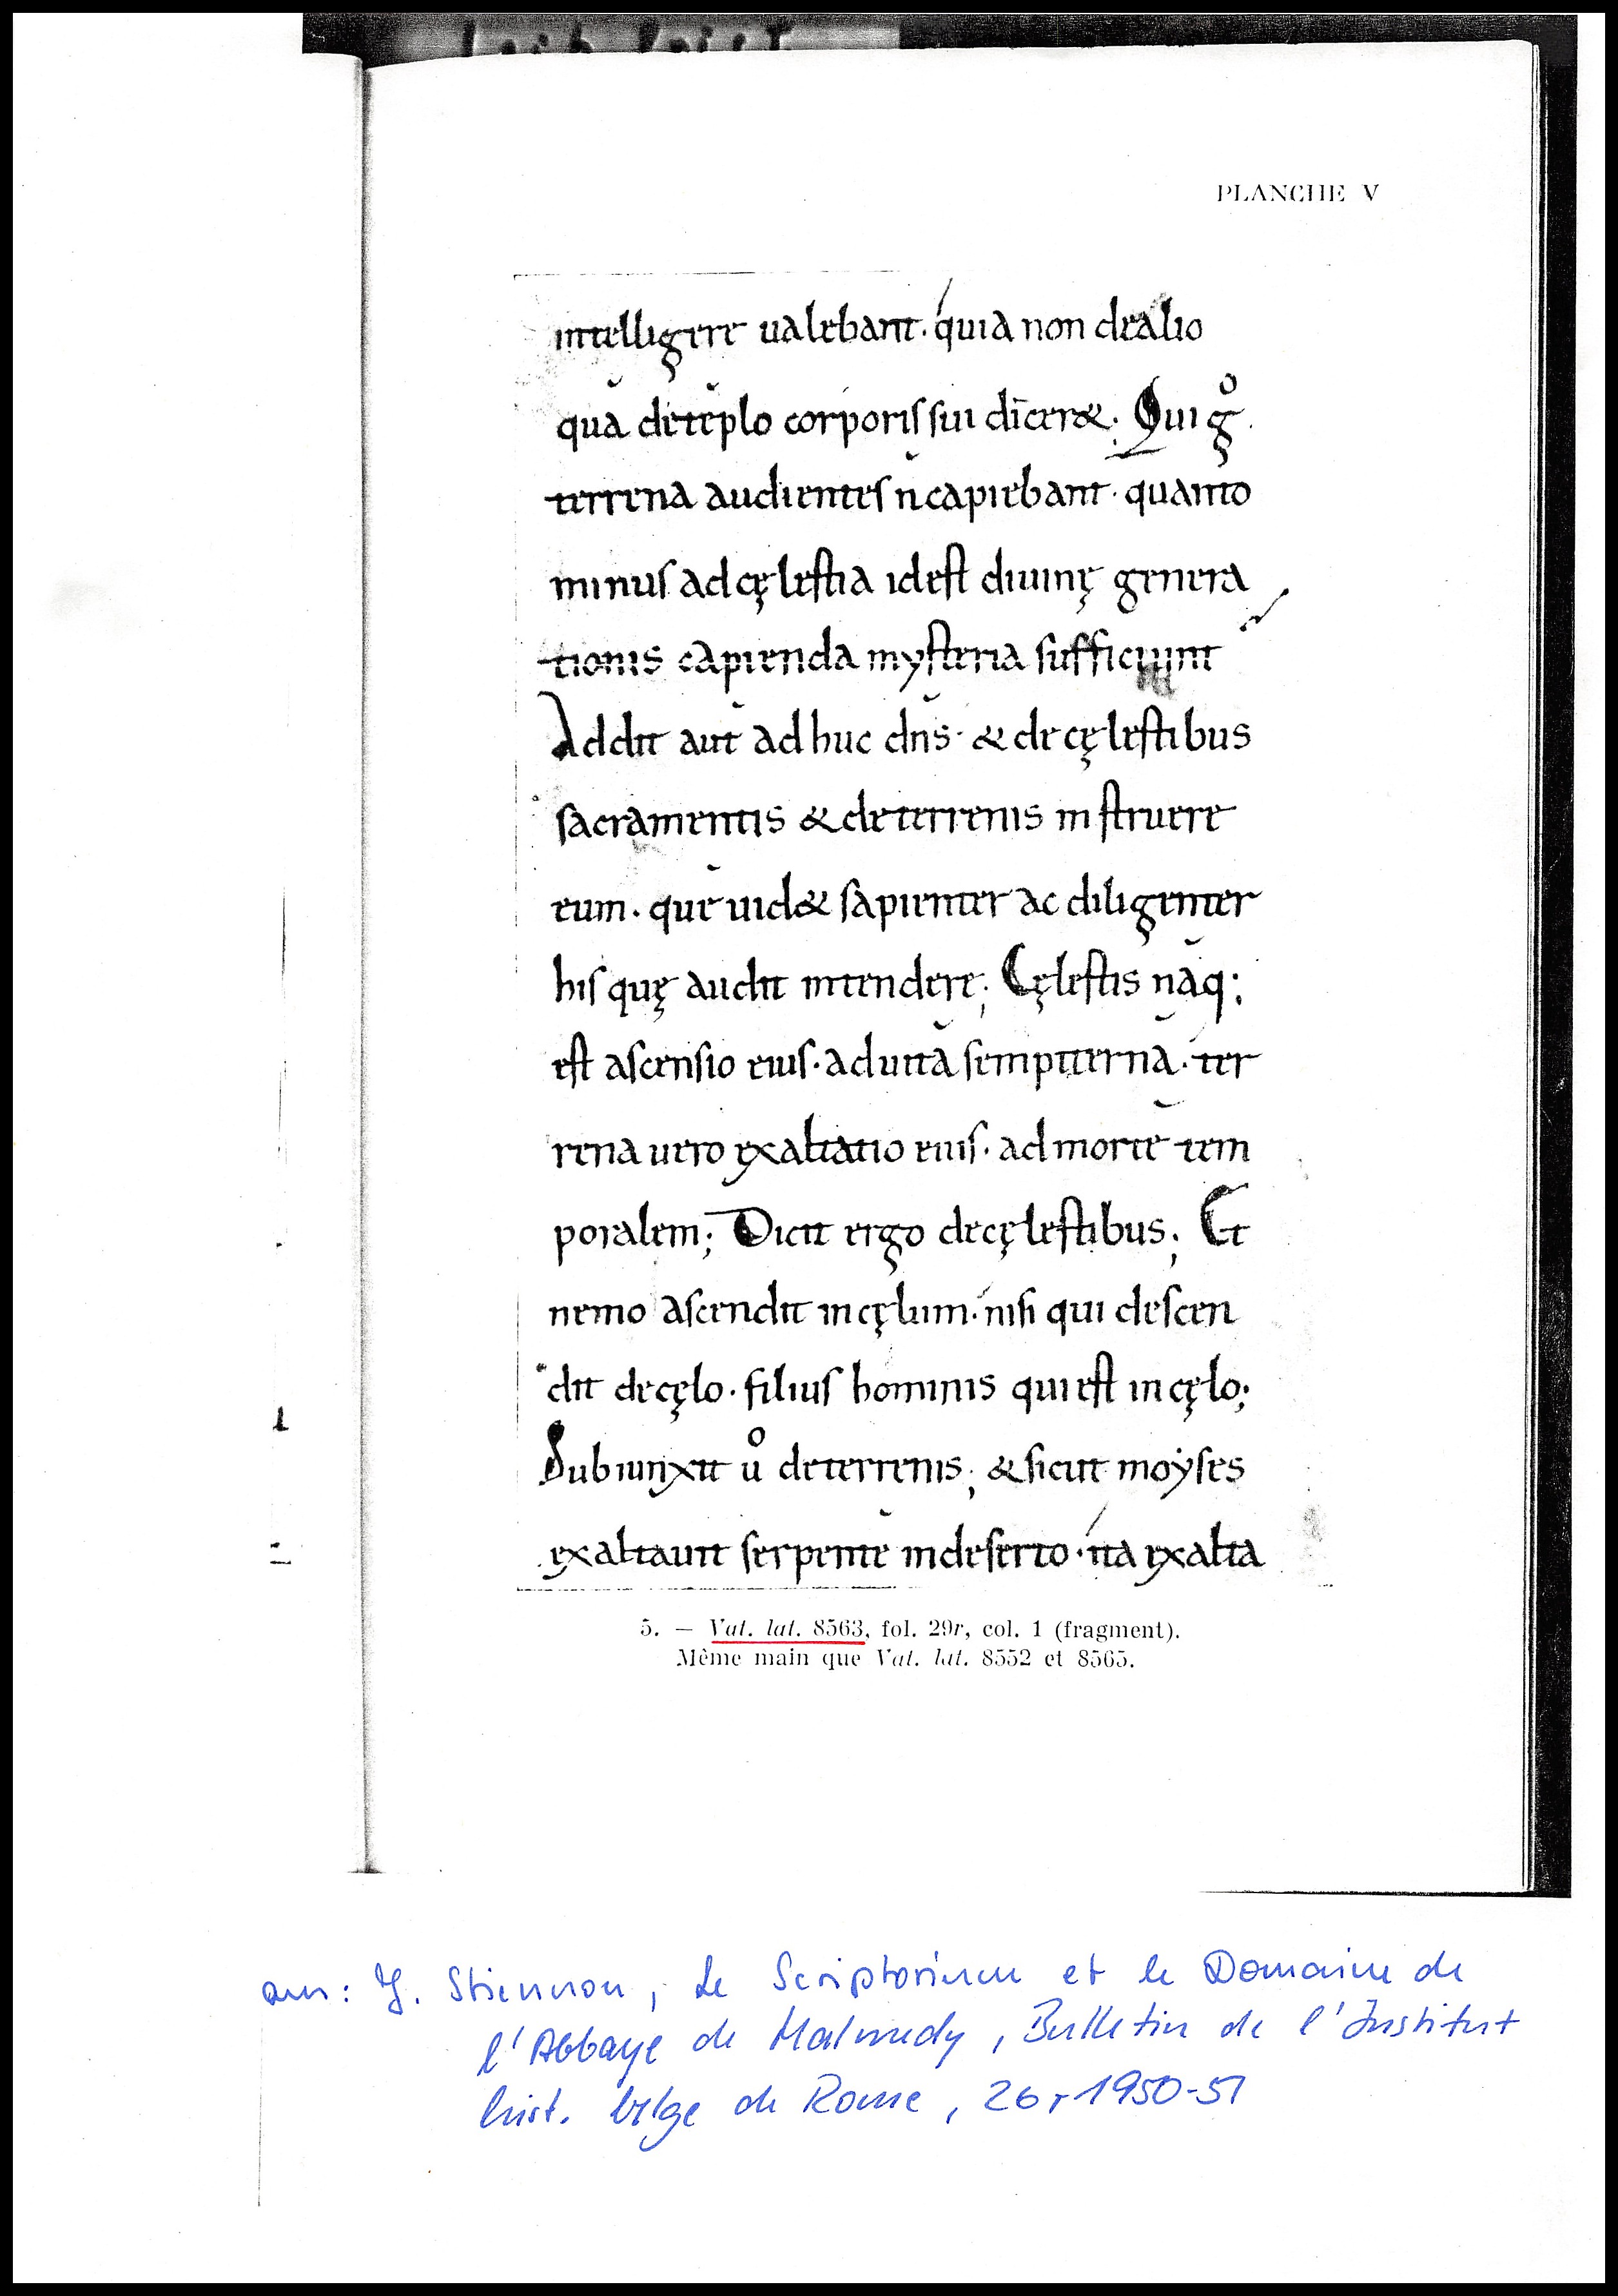 PLANCHE V
intelligere ualebant· quia non dealio
qua dete᷃plo corporis sui dicer&· Qui gͦ·
terrena audientes n̆ capiebant· quanto
minus ad cęlestia idest diuinę genera
tionis capienda mysteria sufficiunt
Addit aut̆ adhuc dn̆s· & de cęlestibus
sacramentis & deterrenis instruere
eum· quĕ uid& sapienter ac diligenter
his quę audit intendere; Cęlestis năq;
est ascensio eius· aduită sempiternă· ter
rena uero exaltatio eius· admortĕ tem
poralem; Dicit ergo decęlestibus; Et
nemo ascendit incęlum· nisi qui descen
dit decęlo· filius hominis qui est incęlo;
Subiunxit uͦ deterrenis; & sicut moẏses
exaltauit serpentĕ indeserto· ita exalta
5. — Vat. lat. 8563, fol. 29r, col. 1 (fragment).
Même main que Vat. lat. 8552 et 8565.
aus: J. Stiennon, Le Scriptorium et le Domaine de
l'Abbaye de Malmedy, Bulletin de l'Institut
hist. belge de Rome, 26, 1950-51